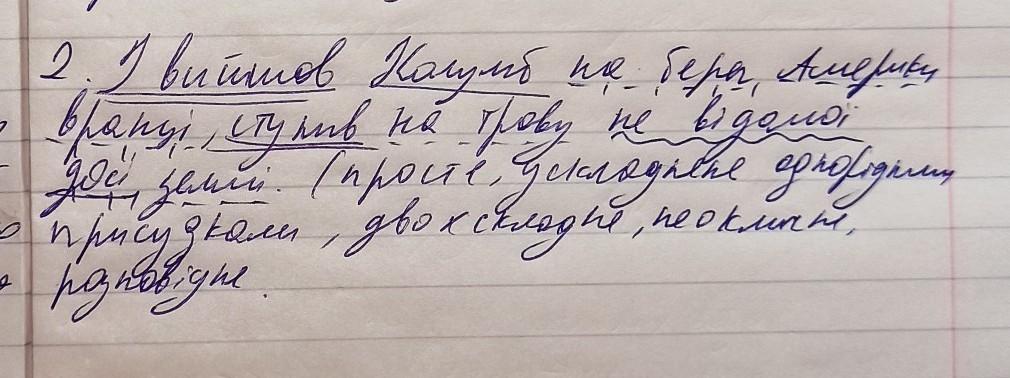 2. І вийшов Колумб на берег Америки
вранці, ступив на траву не відомої
досі землі. (просте, ускладнене однорідними
присудками, двохскладне, неокличне,
розповідне.